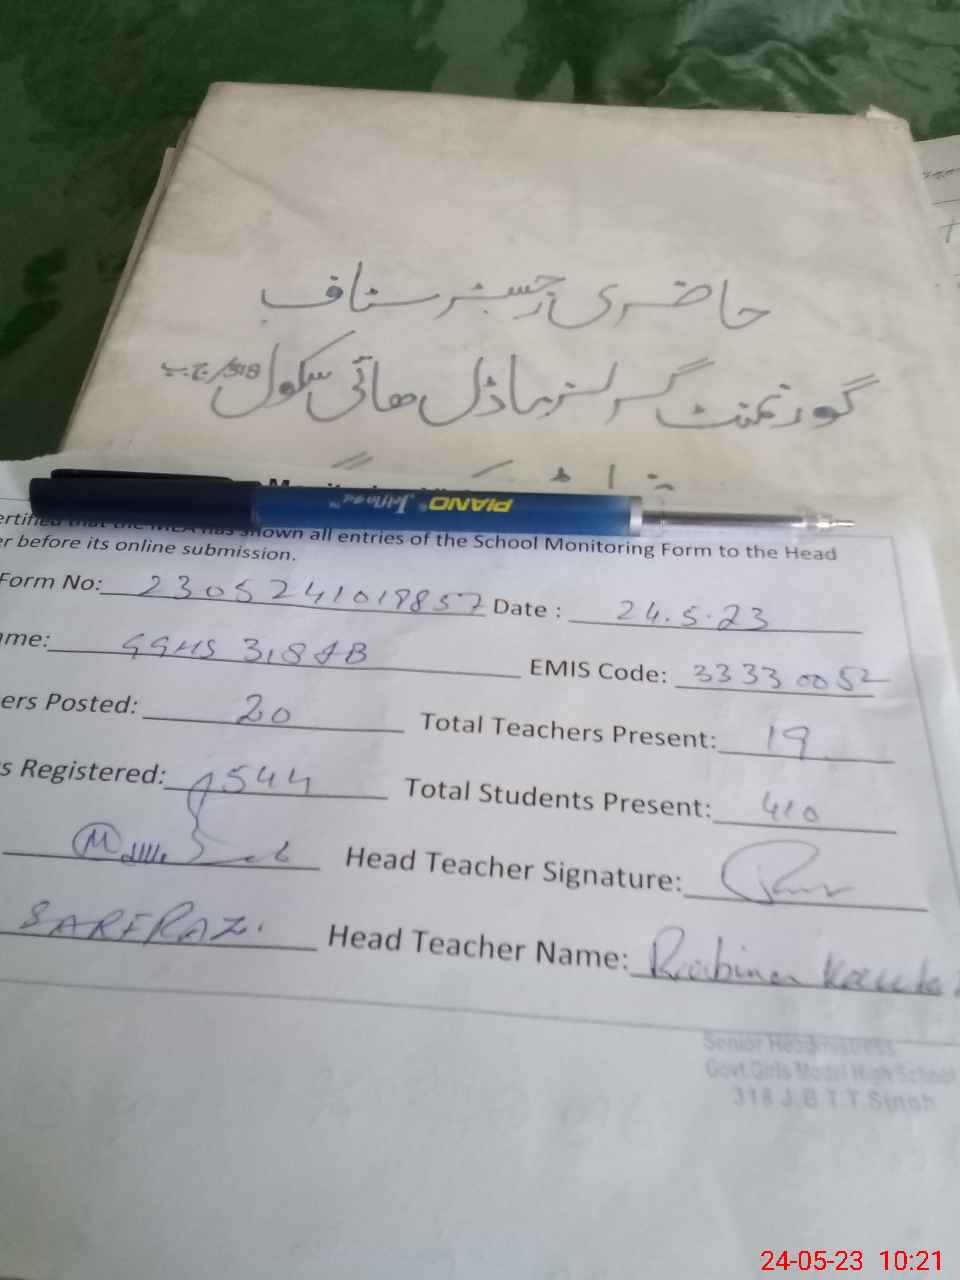 حاضری رجسٹر سٹاف
گورنمنٹ گرلز ماڈل ھائی سکول 318/ج ب
PIANO Jetflo ™
ertified that the MEA has shown all entries of the School Monitoring Form to the Head
er before its online submission.
Form No: 2305241019857 Date : 24.5.23
ame: GGHS 318JB EMIS Code: 33330052
ers Posted: 20 Total Teachers Present: 19
s Registered: 544 Total Students Present: 410
Head Teacher Signature:
SARFRAZ. Head Teacher Name: Rubina
Senior Headmistress
Govt.Girls Model High School
318 J.B T.T.Singh
24-05-23 10:21